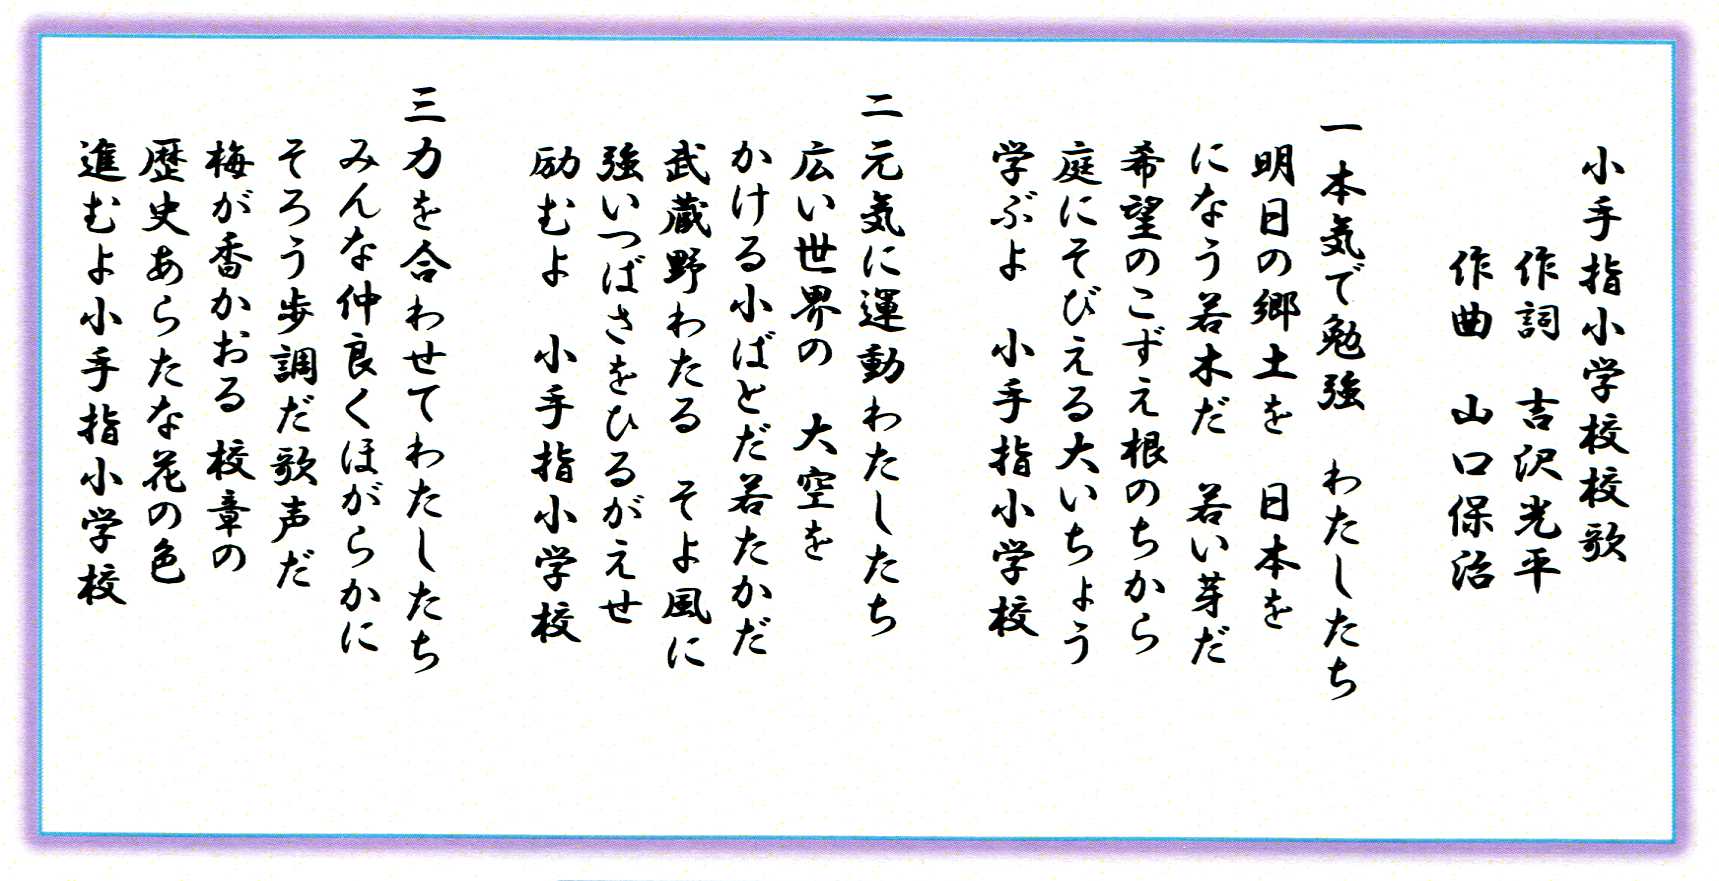 小手指小学校校歌
作詞　吉沢光平
作曲　山口保治
一 本気で勉強　わたしたち
明日の郷土を　日本を
になう若木だ　若い芽だ
希望のこずえ根のちから
庭にそびえる大いちょう
学ぶよ　小手指小学校
二 元気に運動わたしたち
広い世界の　大空を
かける小ばとだ若たかだ
武蔵野わたる　そよ風に
強いつばさをひるがえせ
励むよ　小手指小学校
三 力を合わせてわたしたち
みんな仲良くほがらかに
そろう歩調だ歌声だ
梅が香かおる 校章の
歴史あらたな花の色
進むよ小手指小学校